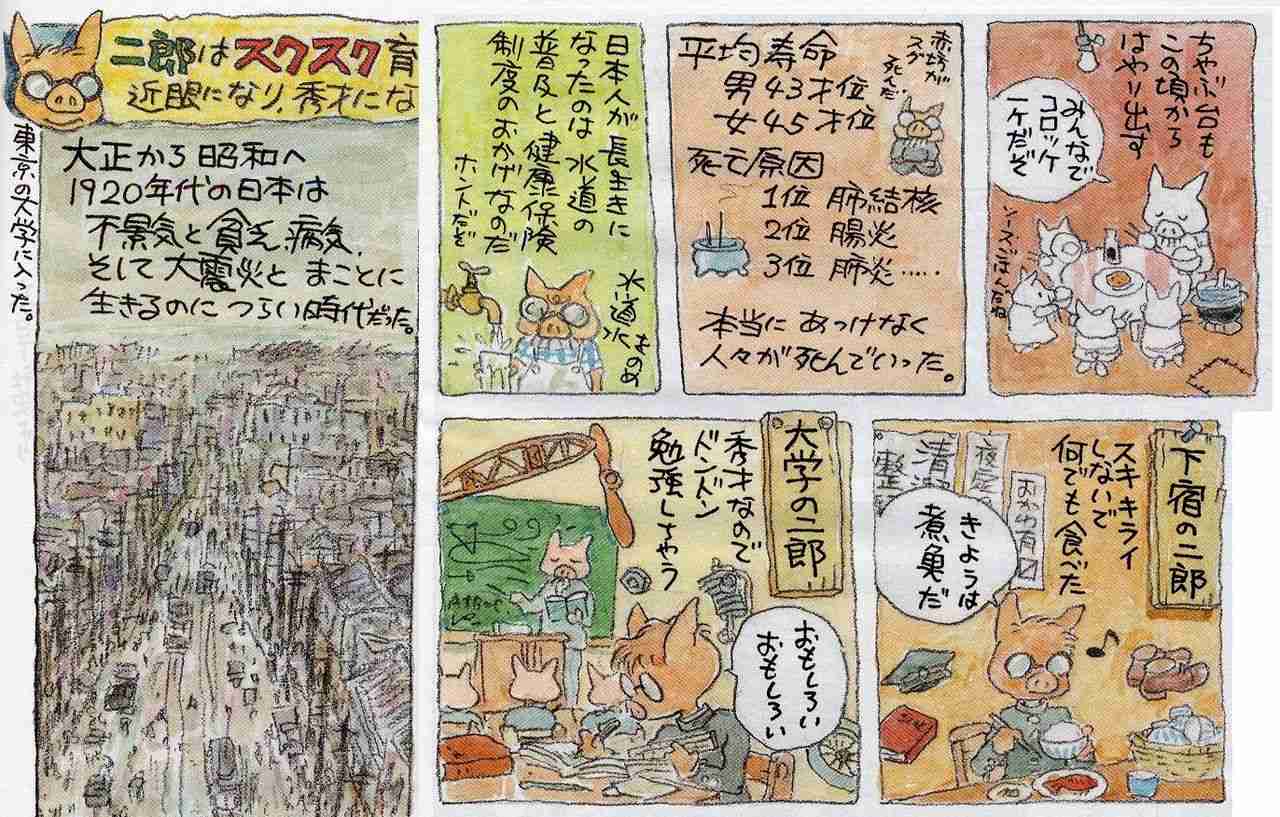 二郎はスクスク育
近眼になり、秀才にな
東京の大学に入った。
大正から昭和へ
1920年代の日本は
不景気と貧乏、病気、
そして大震災と まことに
生きるのに つらい時代だった。
ちゃぶ台も
この頃から
はやり出す
みんなで
コロッケ
一ケだぞ
ソースごはんだね
平均寿命
男 43才位
女 45才位
赤坊が
スグ
死んだ
死亡原因
1位 肺結核
2位 腸炎
3位 肺炎‥‥‥
本当に あっけなく
人々が死んでいった。
日本人が長生きに
なったのは 水道の
普及と健康保険
制度のおかげなのだ
ホントだぞ
水道水
下宿の二郎
スキキライ
しないで
何でも食べた
おかわり有〼
きょうは
煮魚だ
大学の二郎
秀才なので
ドンドン
勉強しちゃう
おもしろい
おもしろい